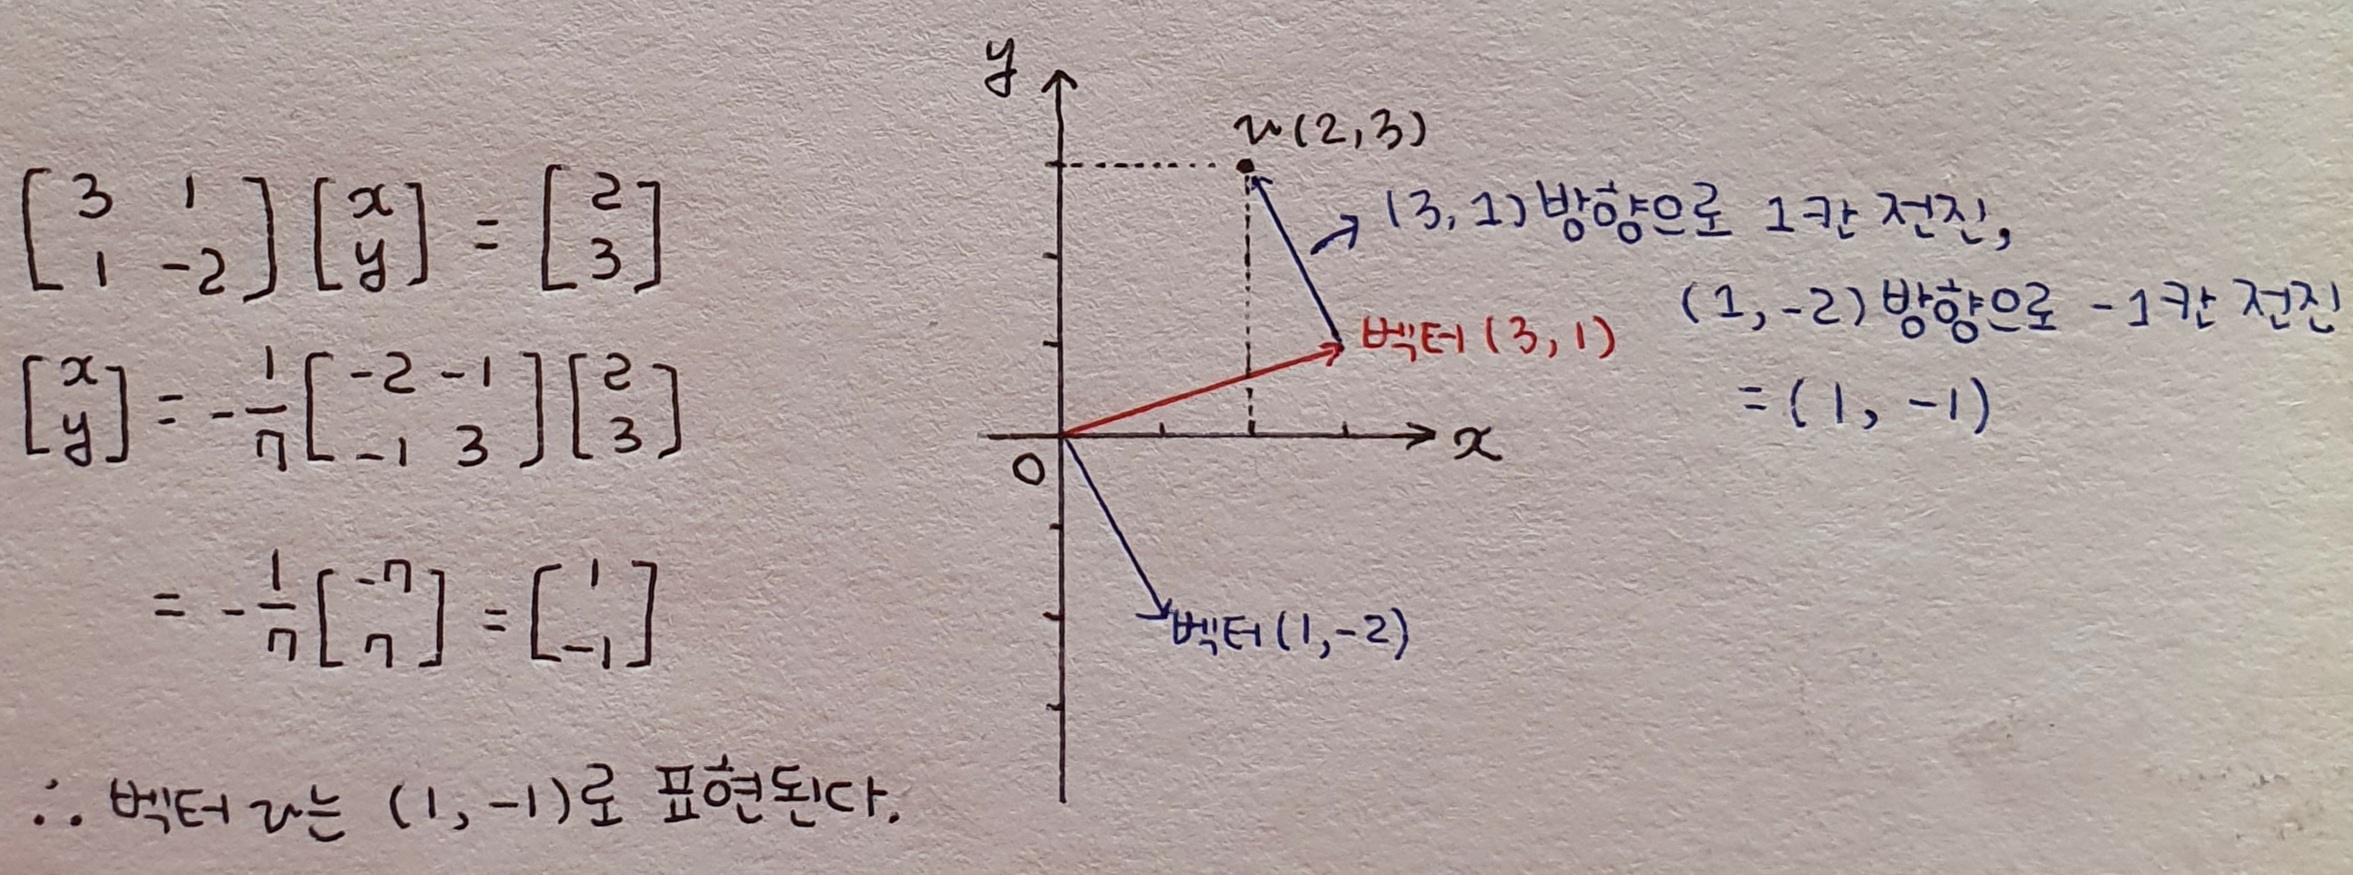 [3 1
1 -2] [x
y] = [2
3]
[x
y] = -1/7 [-2 -1
-1 3] [2
3]
= -1/7 [-7
7] = [1
-1]
∴ 벡터 v는 (1, -1)로 표현된다.
y
v(2,3)
(3, 1) 방향으로 1칸 전진,
(1, -2) 방향으로 -1칸 전진
= (1, -1)
벡터 (3, 1)
x
O
벡터 (1, -2)